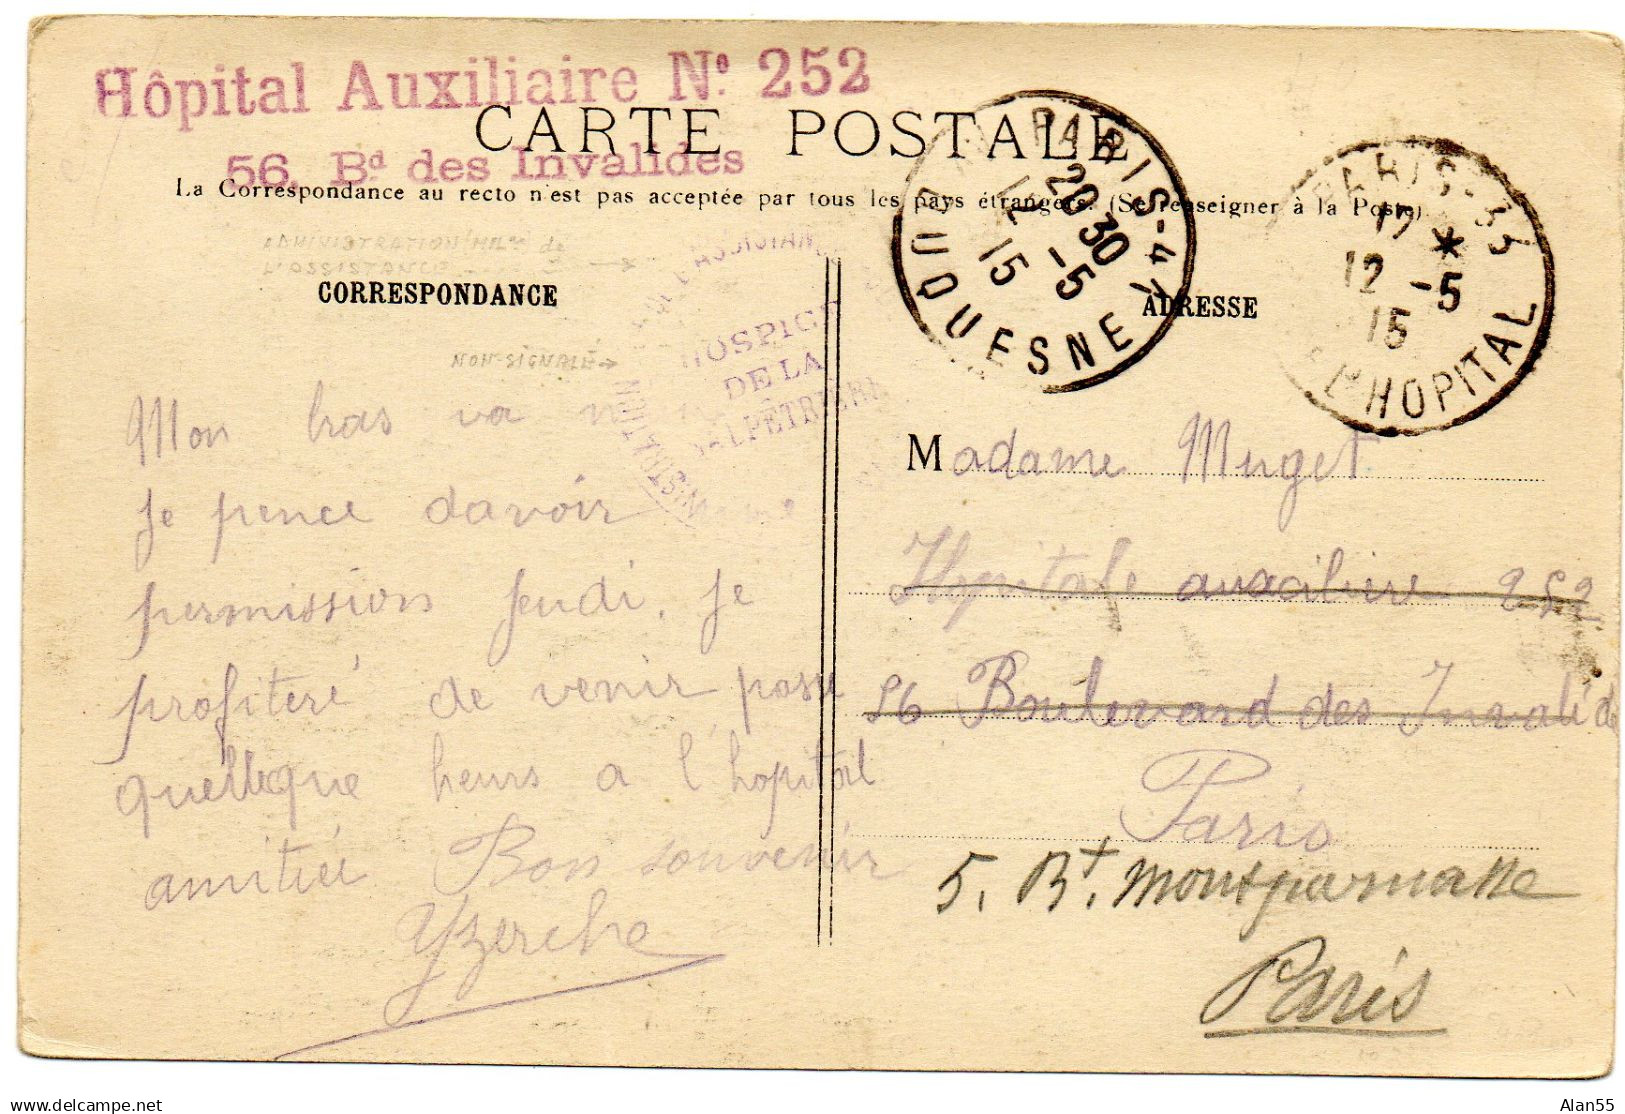 Hôpital Auxiliaire Nº 252
CARTE POSTALE
56, Bd des Invalides
La Correspondance au recto n'est pas acceptée par tous les pays étrangers. (Se renseigner à la Poste).
ADMINISTRATION de
L'ASSISTANCE
CORRESPONDANCE
NON-SIGNALÉ →
HOSPICE
DE LA
SALPÊTRIÈRE
PARIS-47
20 30
12 -5
15
DUQUESNE
ADRESSE
PARIS-33
17 *
12 -5
15
Bd L'HOPITAL
Mon bras va
Je pence davoir
permission Jeudi, Je
profiteré de venir passe
quelleque heurs a l'hopital
amitiée Bon souvenir
Yzerche
Madame Muget
Hopitale auxciliere 252
56 Boulevard des Invalide
Paris
5. Bt. Montparnasse
Paris
Alan55